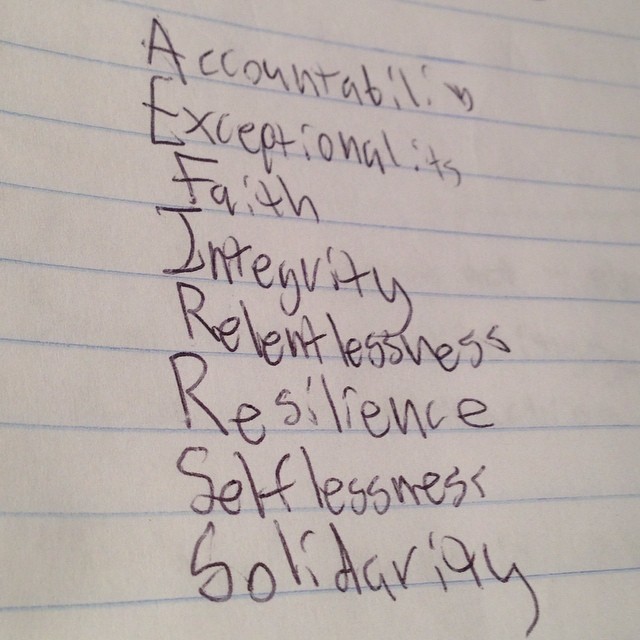 Accountability
Exceptionality
Faith
Integrity
Relentlessness
Resilience
Selflessness
Solidarity